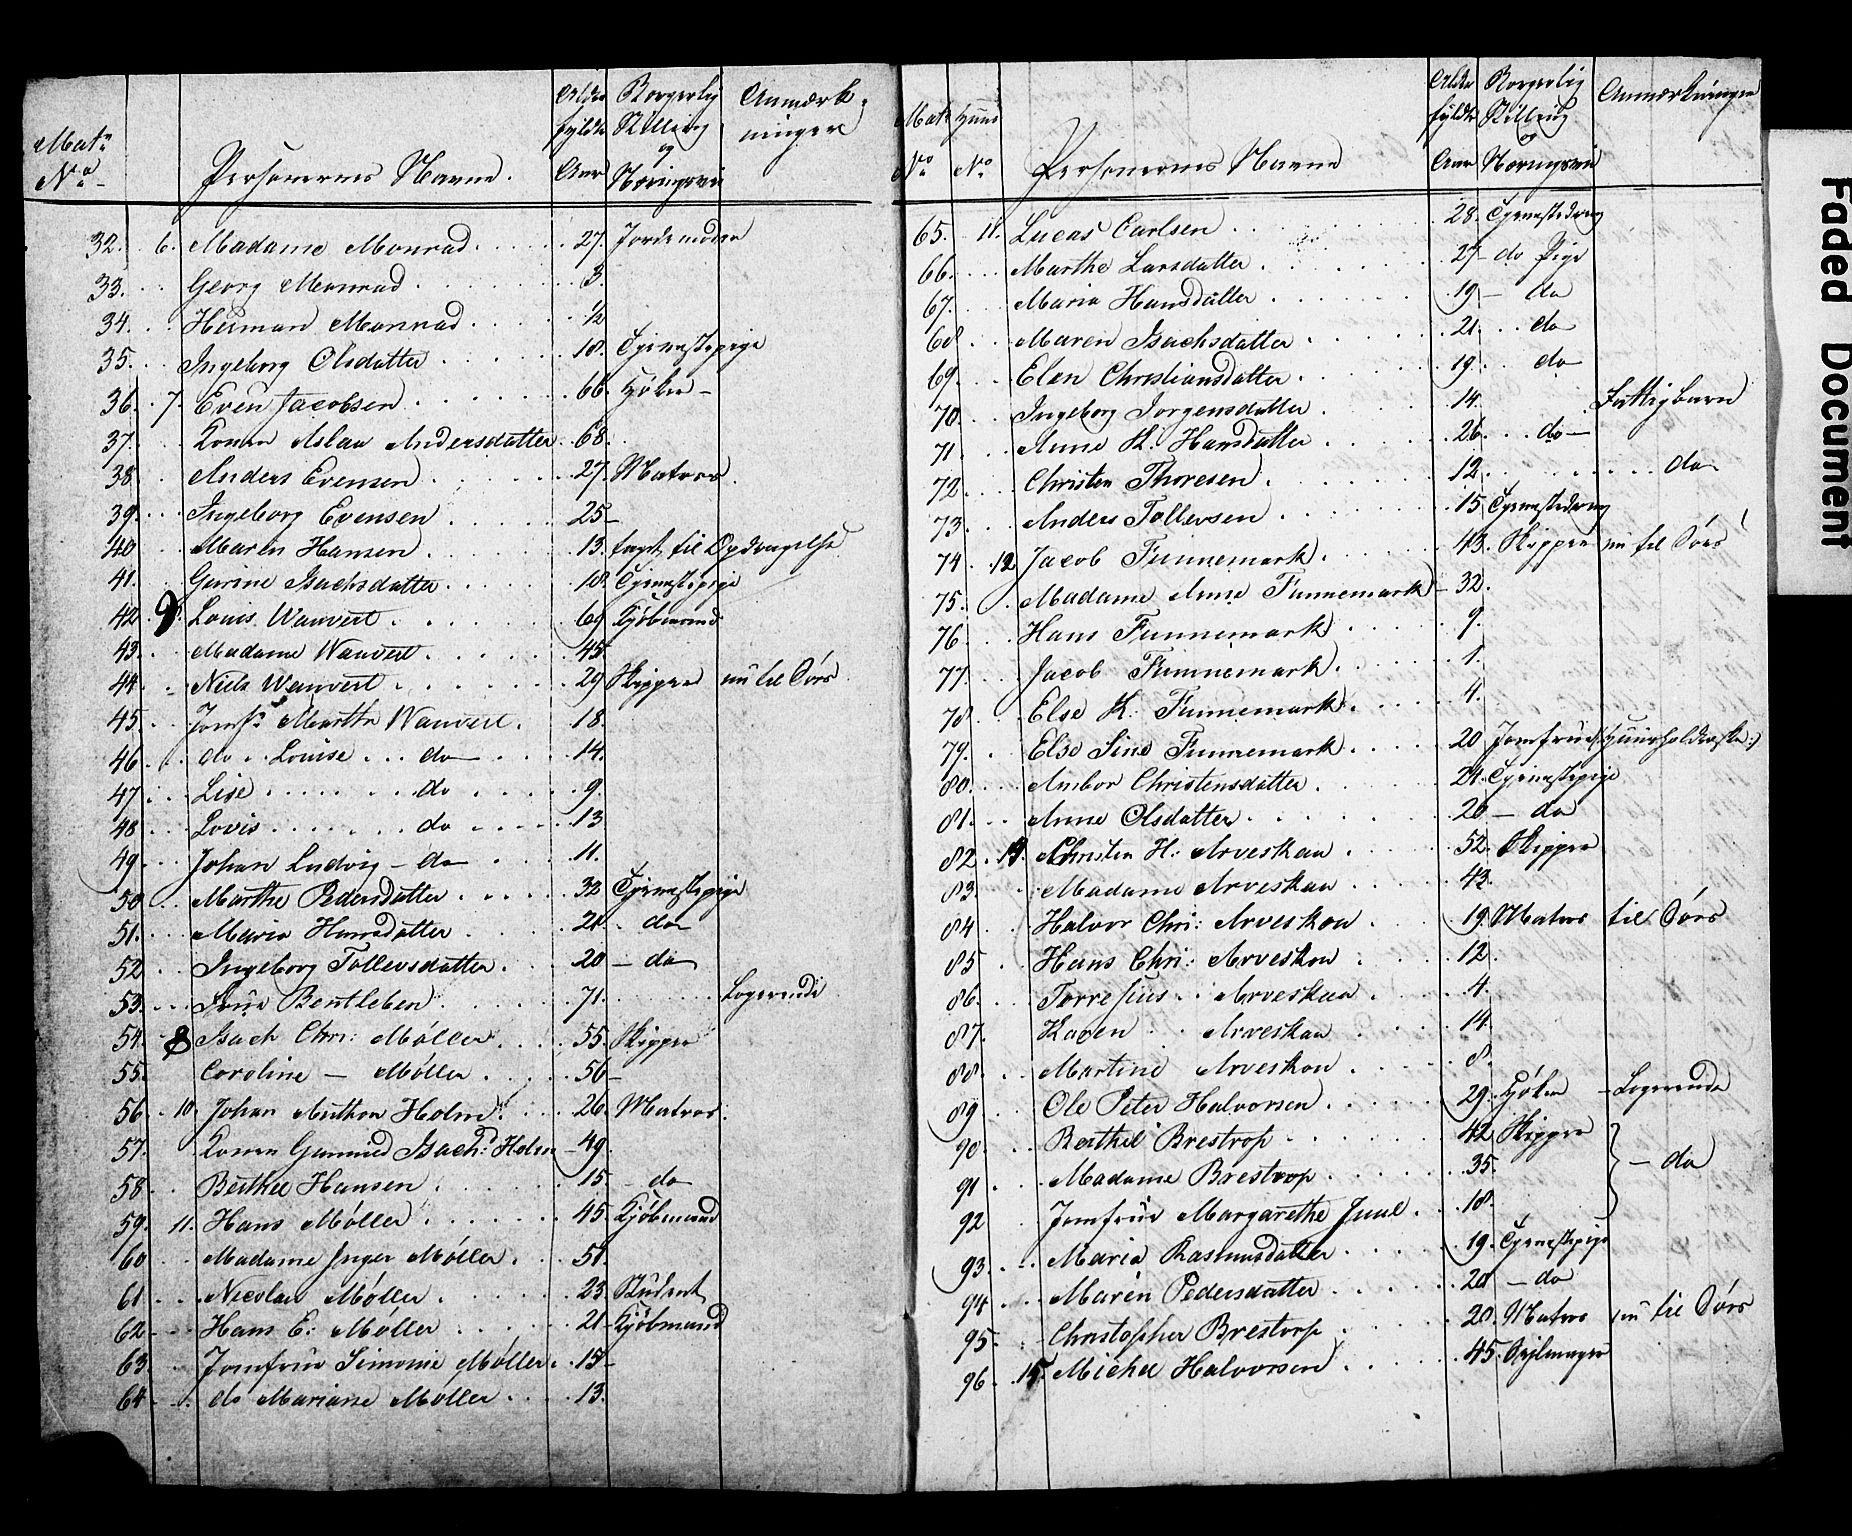 Matr No Personernes Navne. Alder fyldte Aar Borgerlig Stilling og Næringsvei Anmærkninger
32. 6. Madame Monrad 27. Jordemoder
33. Georg Monrad 3.
34. Herman Monrad ½
35. Ingeborg Olsdatter 18. Tjenestepige
36. 7. Even Jacobsen 66. Høker
37. Konen Aslau Andersdatter 68.
38. Anders Evensen 27. Matros
39. Ingeborg Evensen 25
40 Maren Hansen 13. taget til Opdragelse
41. Gurine Isachsdatter 18. Tjenestepige
42. 8. Louis Wauvert 69 Kjøbmand
43. Madame Wauvert 45
44. Niels Wauvert 29 Skipper nu til Søes
45. Jomfr Marthe Wauvert. 18.
46. do Louise do 14.
47. Lise do 9.
48. Lovis do 13
49. Johan Ludvig do 11.
50. Marthe Pedersdatter 32 Tjenestepige
51. Maria Hansdatter 21 do
52. Ingeborg Tollevsdatter. 20 do
53. Frue Bentleben 71. Logerende
54. Isach Chri: Møller 55. Skipper
55. Coroline — Møller 56
56. 10. Johan Anthon Holm 26. Matros.
57. Konen Gunnild Isach: Holm 49
58. Berthe Hansen 15 do
59. 11. Hans Møller 45. Kjøbmand
60 Madame Inger Møller. 51.
61. Nicolai Møller 23 Student
62 Hans E: Møller 21 Kjøbmand
63. Jomfrue Simonie Møller. 15
64. do Mariane Møller 13.
Matr No Huus No Personernes Navne Alder fyldte Aar Borgerlig Stilling og Næringsvei Anmærkninger
65. 11. Lucas Carlsen 28. Tjenestedreng
66. Marthe Larsdatter 27 do Pige
67. Maria Hansdatter 19 do
68 Maren Isachsdatter 21. do
69. Elen Christiansdatter 19. do
70. Ingeborg Jorgensdatter 14. Fattigbarn
71. Anne K. Hansdatter 26 do
72. Christen Thoresen 12. do
73. Anders Tollevsen 15 Tjenestedreng
74 12 Jacob Funnemark 43. Skipper nu til Søes
75. Madame Anne Funnemark 32.
76 Hans Funnemark 9.
77. Jacob Funnemark 1.
78 Else K: Funnemark 4.
79. Else Sine Funnemark 20 Jomfrue (: Huusholderske :)
80. Ambor Christensdatter 24. Tjenestepige
81. Anne Olsdatter 20 do
82. Christen H: Arveskau 52. Skipper
83. Madame Arveskau 43.
84. Halvor Chri: Arveskau 19. Matros til Søes
85 Hans Chri: Arveskau 12.
86. Torresius Arveskau 4.
87. Karen Arveskau 14.
88. Martine Arveskau 8.
89 Ole Peter Halvorsen 29. Høker Logerende
90. Berthel Brestrop 42 Skipper
91 Madame Brestrop 35. } — do
92 Jomfrue Margarethe Juul 18.
93. Maria Rasmusdatter 19. Tjenestepige
94. Maren Pedersdatter 20 do
95. Christopher Brestorp 28. Matros nu til Søes
96 15. Michel Halvorsen 45. Sejlmager
Faded Document